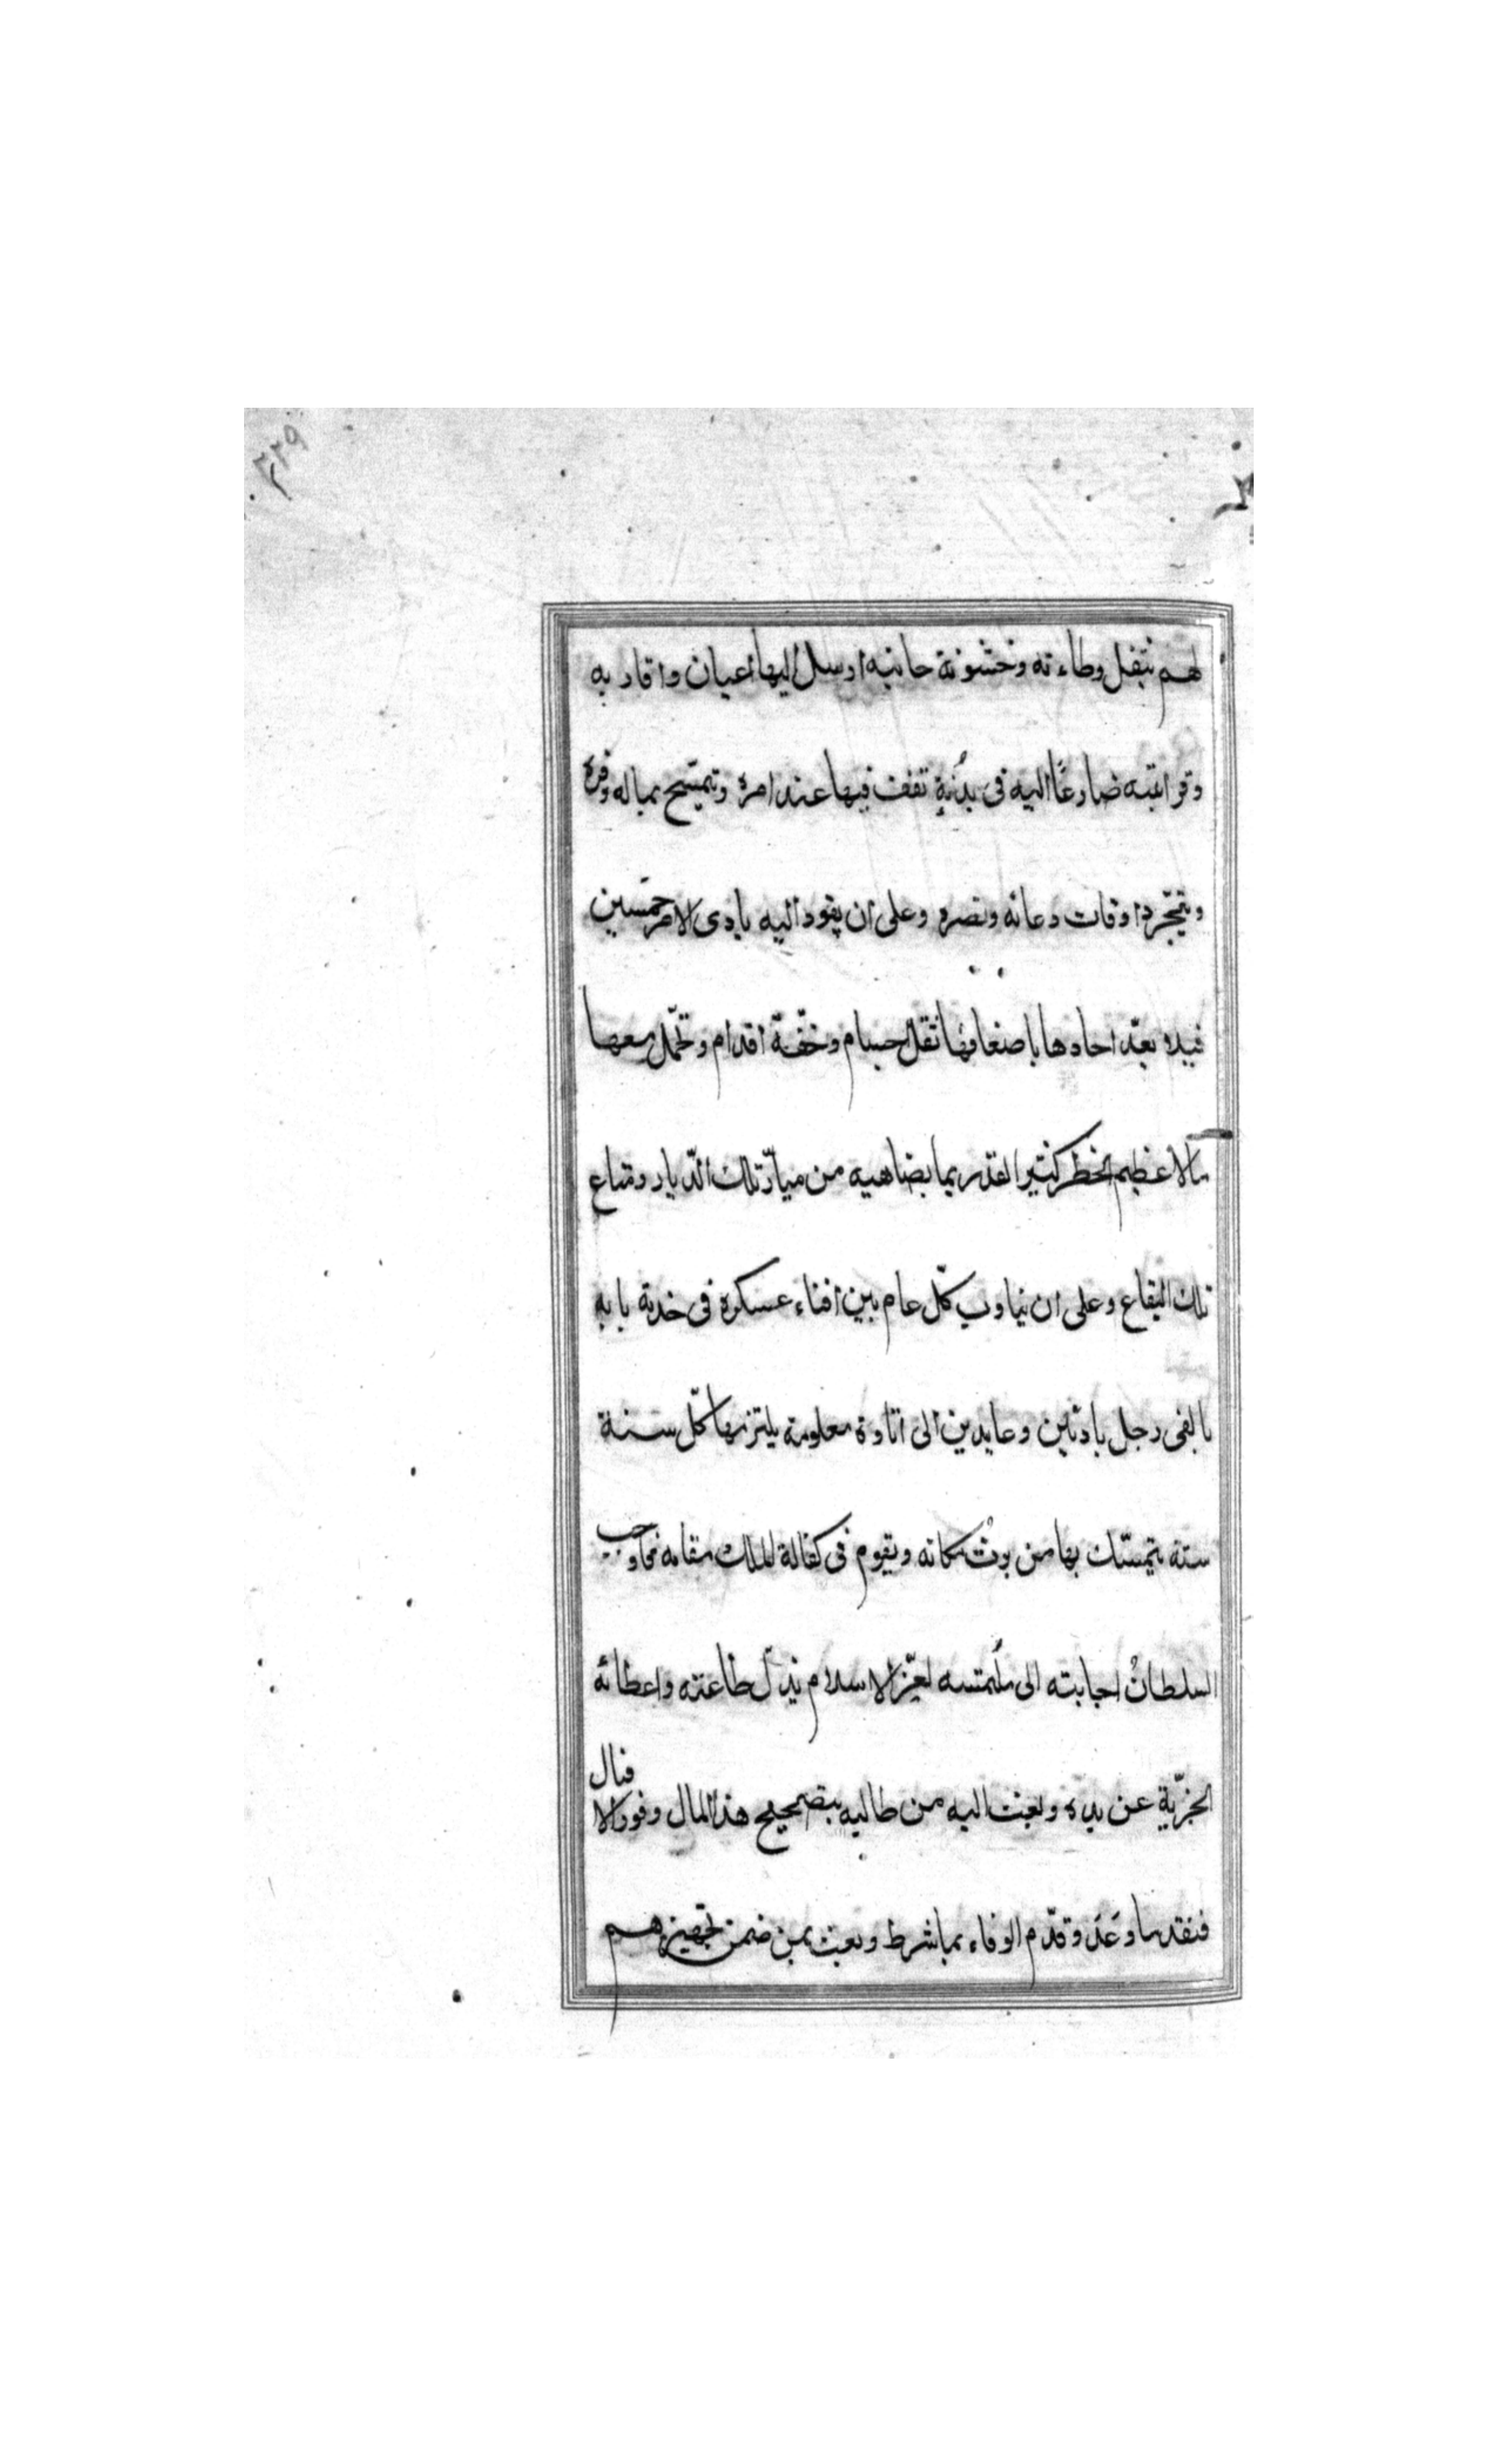 ٢٢٩
لهم بثقل وطاءته وخشونة جانبه ارسل اليها اعيان واقاربه
وقرابته ضارعًا اليه فى بدُنةٍ تقف فيها عند امره وتمسّح بماله وفره
ويتجّرد اوقات دعائه ونصره وعلى ان يقود اليه بادى الامر خمسين
فيلا بعدّ احادها باضعافها ثقل اجسام وخفّة اقدام وتحمّل معها
مالا عظيم الخطر كثير القدر بما يضاهيه من ميارّ تلك الدّيار ومتاع
تلك البقاع وعلى ان يناوب كلّ عام بين افناء عسكره فى خدمة بابه
بالفى رجل بادئين وعايدين الى اتاوة معلومة يلتزمها كلّ سنة
سنة يتمسّك بها من يرثُ مكانه ويقوم فى كفالة الملك مقامه فاوجب
السلطانُ اجابته الى مُلتمسه لعزّ الاسلام بذلّ طاعته واعطائه
الجزّية عن يده وبعث اليه من طالبه بتصحيح هذا المال وقود الافيال
فنقد ما وعَد وقدّم الوفاء بما شرط وبعث بمن ضمن تجهيزهم